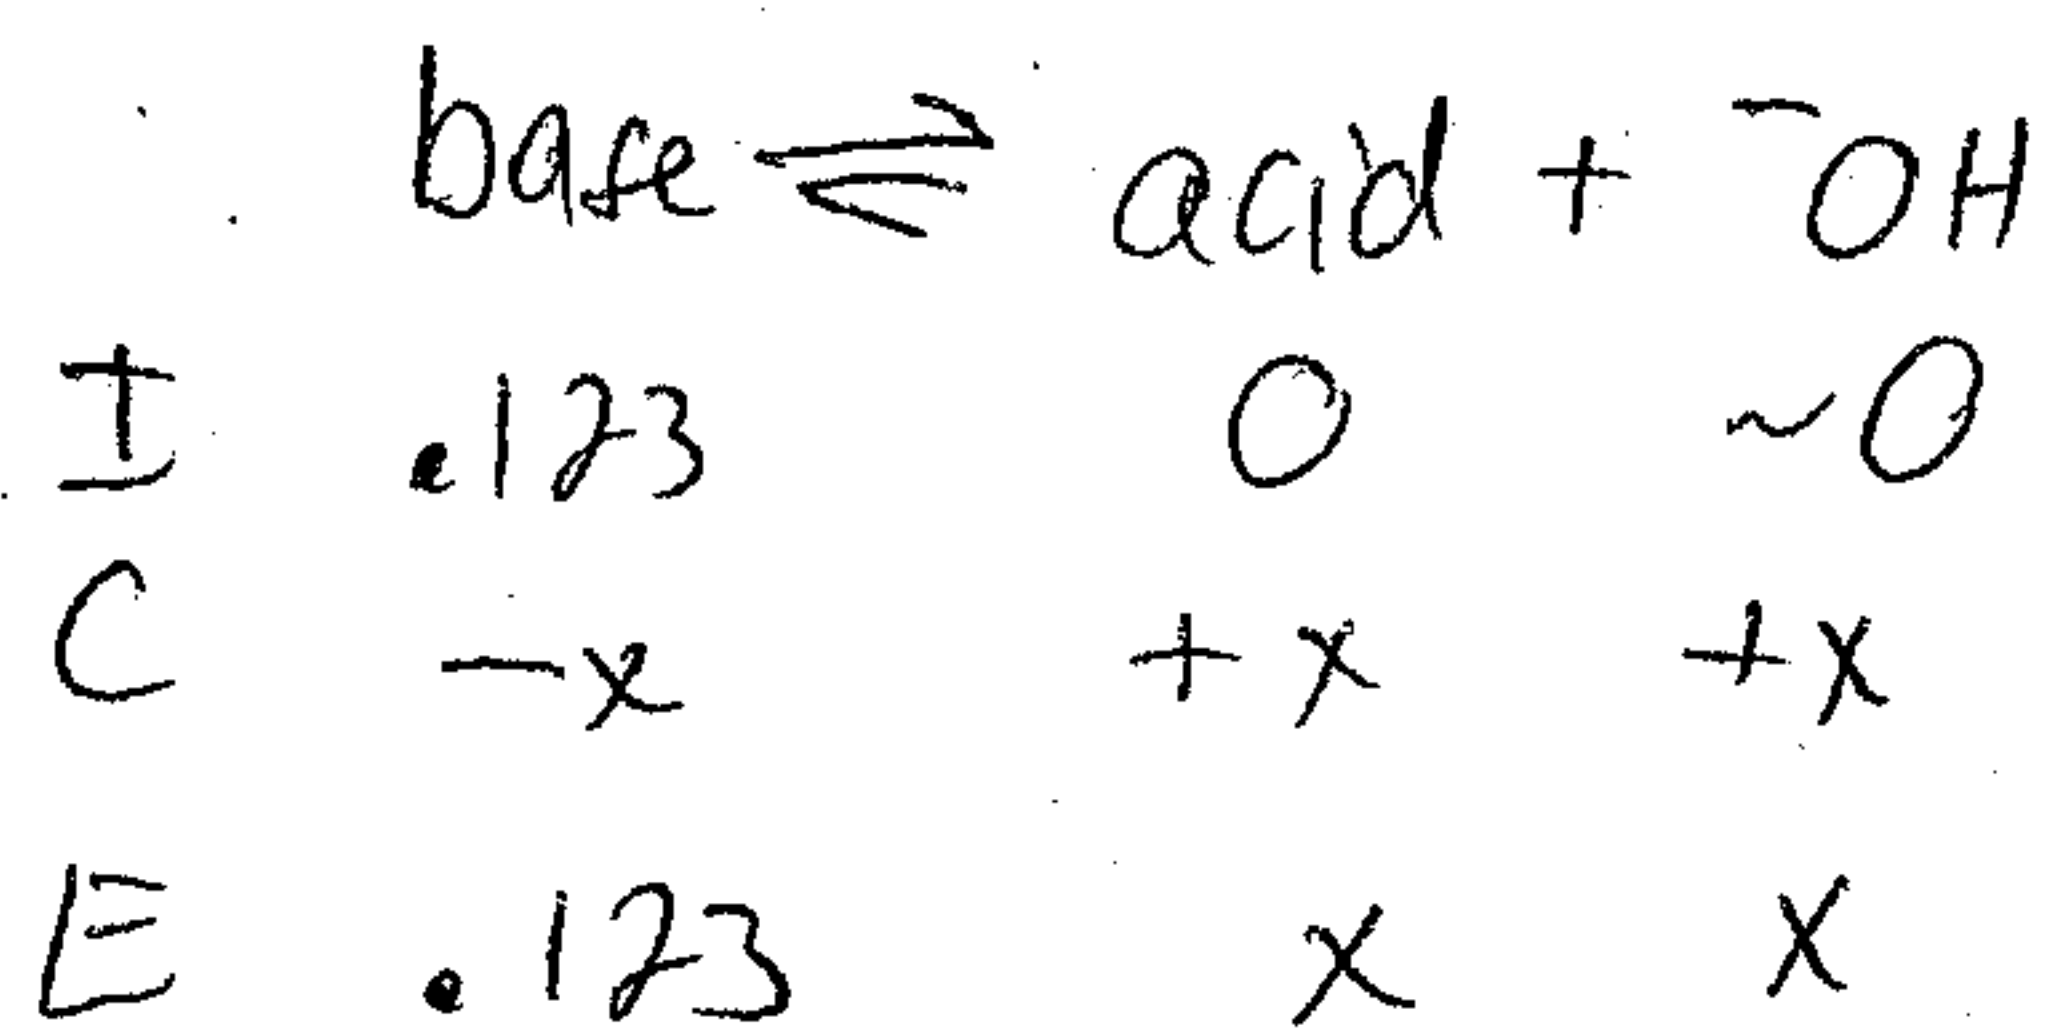 base ⇌ acid + ⁻OH
I .123 0 ~0
C -x +x +x
E .123 x x